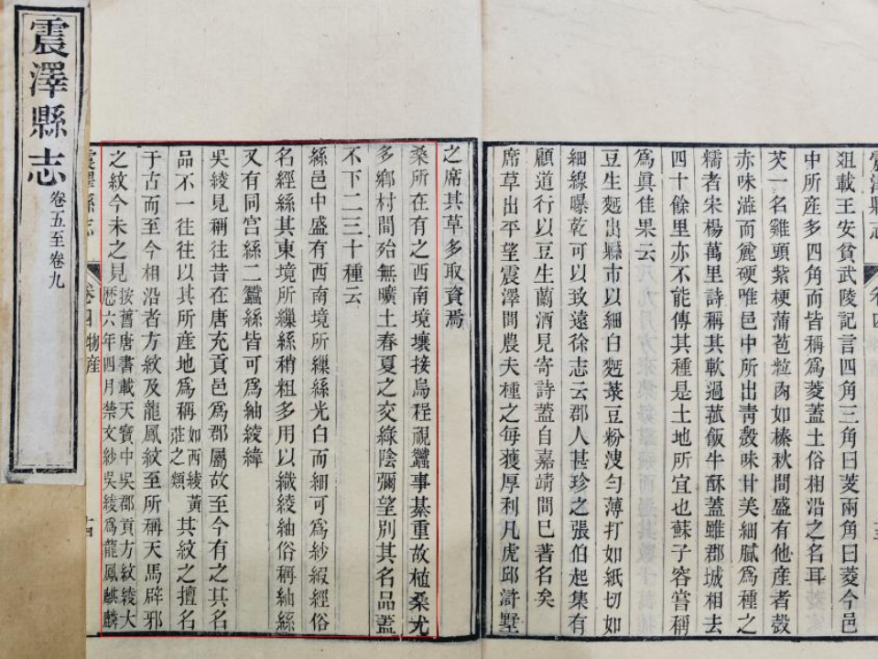 震澤縣志
卷五至卷九
震澤縣志
卷四
俎載王安貧武陵記言四角三角曰芰兩角曰菱今邑
中所産多四角而皆稱爲菱蓋土俗相沿之名耳
芡一名雞頭紫梗蒲苞粒肉如榛秋間盛有他産者殼
赤味澁而麄硬唯邑中所出靑殼味甘美細膩爲種之
糯者宋楊萬里詩稱其軟過菰飯牛酥蓋雖郡城相去
四十餘里亦不能傳其種是土地所宜也蘇子容嘗稱
爲眞佳果云
豆生麪出縣市以細白麪菉豆粉溲勻薄打如紙切如
細線曝乾可以致遠徐志云郡人甚珍之張伯起集有
顧道行以豆生蘭酒見寄詩蓋自嘉靖間巳著名矣
席草出平望震澤間農夫種之每獲厚利凡虎邱滸墅
之席其草多取資焉
桑所在有之西南境壤接烏程視蠶事綦重故植桑尤
多鄉村間殆無曠土春夏之交綠陰彌望別其名品蓋
不下二三十種云
絲邑中盛有西南境所繅絲光白而細可爲紗緞經俗
名經絲其東境所繅絲稍粗多用以織綾紬俗稱紬絲
又有同宫絲二蠶絲皆可爲紬綾緯
吳綾見稱往昔在唐充貢邑爲郡屬故至今有之其名
品不一往往以其所産地爲稱如西綾黃莊之類其紋之擅名
于古而至今相沿者方紋及龍鳳紋至所稱天馬辟邪
之紋今未之見按舊唐書載天寶中吳郡貢方紋綾大
歴六年四月禁文紗吳綾爲龍鳳麒麟
震澤縣志
卷四
物産
十四